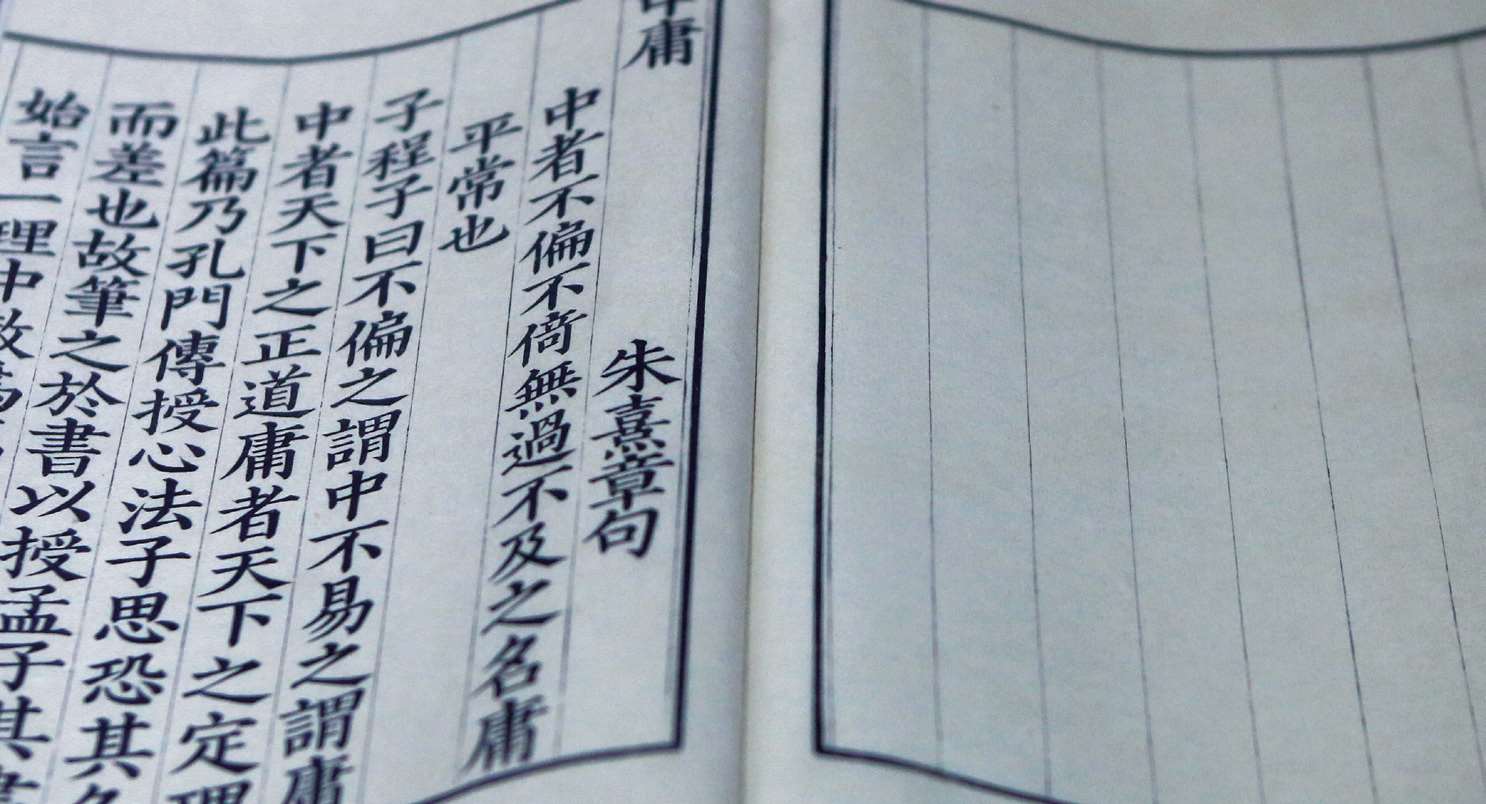 中庸
朱熹章句
中者不偏不倚無過不及之名庸
平常也
子程子曰不偏之謂中不易之謂庸
中者天下之正道庸者天下之定理
此篇乃孔門傳授心法子思恐其久
而差也故筆之於書以授孟子其書
始言一理中散為